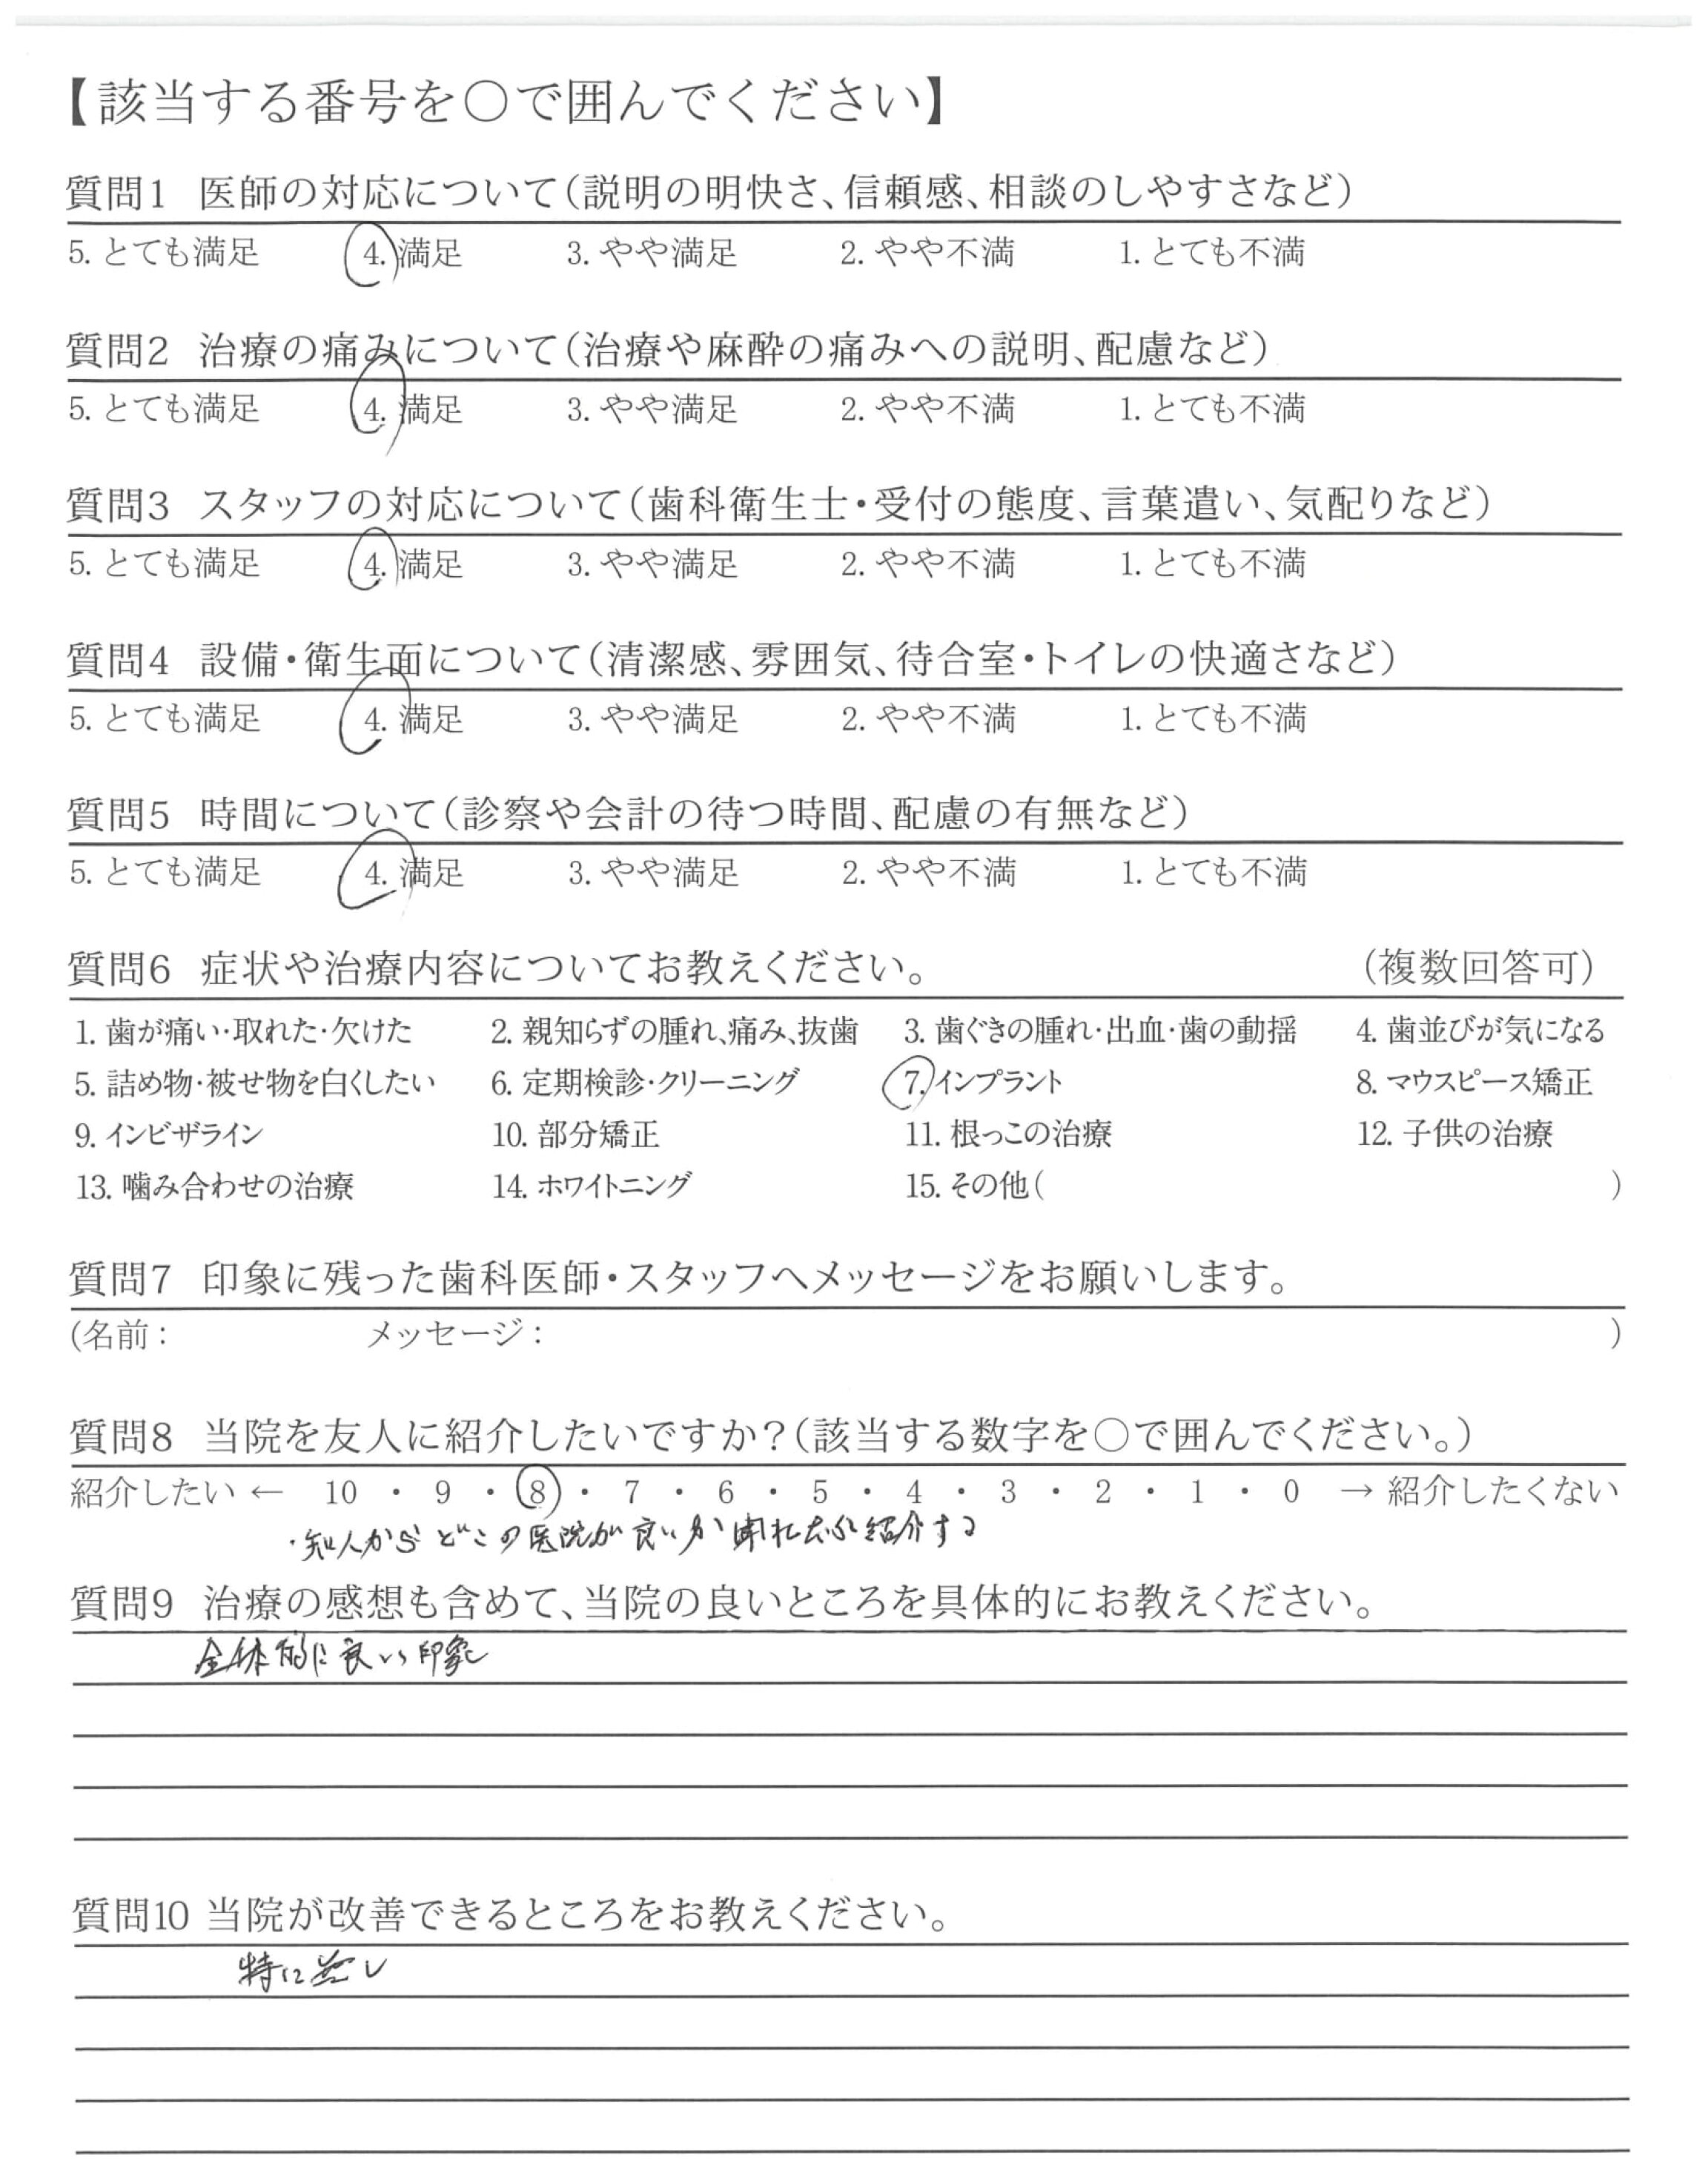 【該当する番号を○で囲んでください】
質問1 医師の対応について(説明の明快さ、信頼感、相談のしやすさなど)
5. とても満足 4. 満足 3. やや満足 2. やや不満 1. とても不満
質問2 治療の痛みについて(治療や麻酔の痛みへの説明、配慮など)
5. とても満足 4. 満足 3. やや満足 2. やや不満 1. とても不満
質問3 スタッフの対応について(歯科衛生士・受付の態度、言葉遣い、気配りなど)
5. とても満足 4. 満足 3. やや満足 2. やや不満 1. とても不満
質問4 設備・衛生面について(清潔感、雰囲気、待合室・トイレの快適さなど)
5. とても満足 4. 満足 3. やや満足 2. やや不満 1. とても不満
質問5 時間について(診察や会計の待つ時間、配慮の有無など)
5. とても満足 4. 満足 3. やや満足 2. やや不満 1. とても不満
質問6 症状や治療内容についてお教えください。 (複数回答可)
1. 歯が痛い・取れた・欠けた 2. 親知らずの腫れ、痛み、抜歯 3. 歯ぐきの腫れ・出血・歯の動揺 4. 歯並びが気になる
5. 詰め物・被せ物を白くしたい 6. 定期検診・クリーニング 7. インプラント 8. マウスピース矯正
9. インビザライン 10. 部分矯正 11. 根っこの治療 12. 子供の治療
13. 噛み合わせの治療 14. ホワイトニング 15. その他( )
質問7 印象に残った歯科医師・スタッフへメッセージをお願いします。
(名前: メッセージ: )
質問8 当院を友人に紹介したいですか?(該当する数字を○で囲んでください。)
紹介したい ← 10 ・ 9 ・ 8 ・ 7 ・ 6 ・ 5 ・ 4 ・ 3 ・ 2 ・ 1 ・ 0 → 紹介したくない
・知人からどこの医院が良いか聞れたら紹介する
質問9 治療の感想も含めて、当院の良いところを具体的にお教えください。
全体的に良い印象
質問10 当院が改善できるところをお教えください。
特に無し